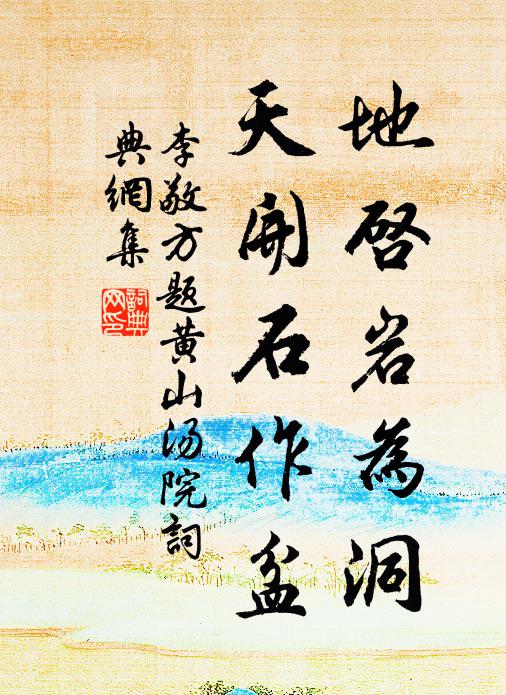 地啓岩為洞
天開石作盆
李敬方题黄山汤院詞
典網集
詞典
网印